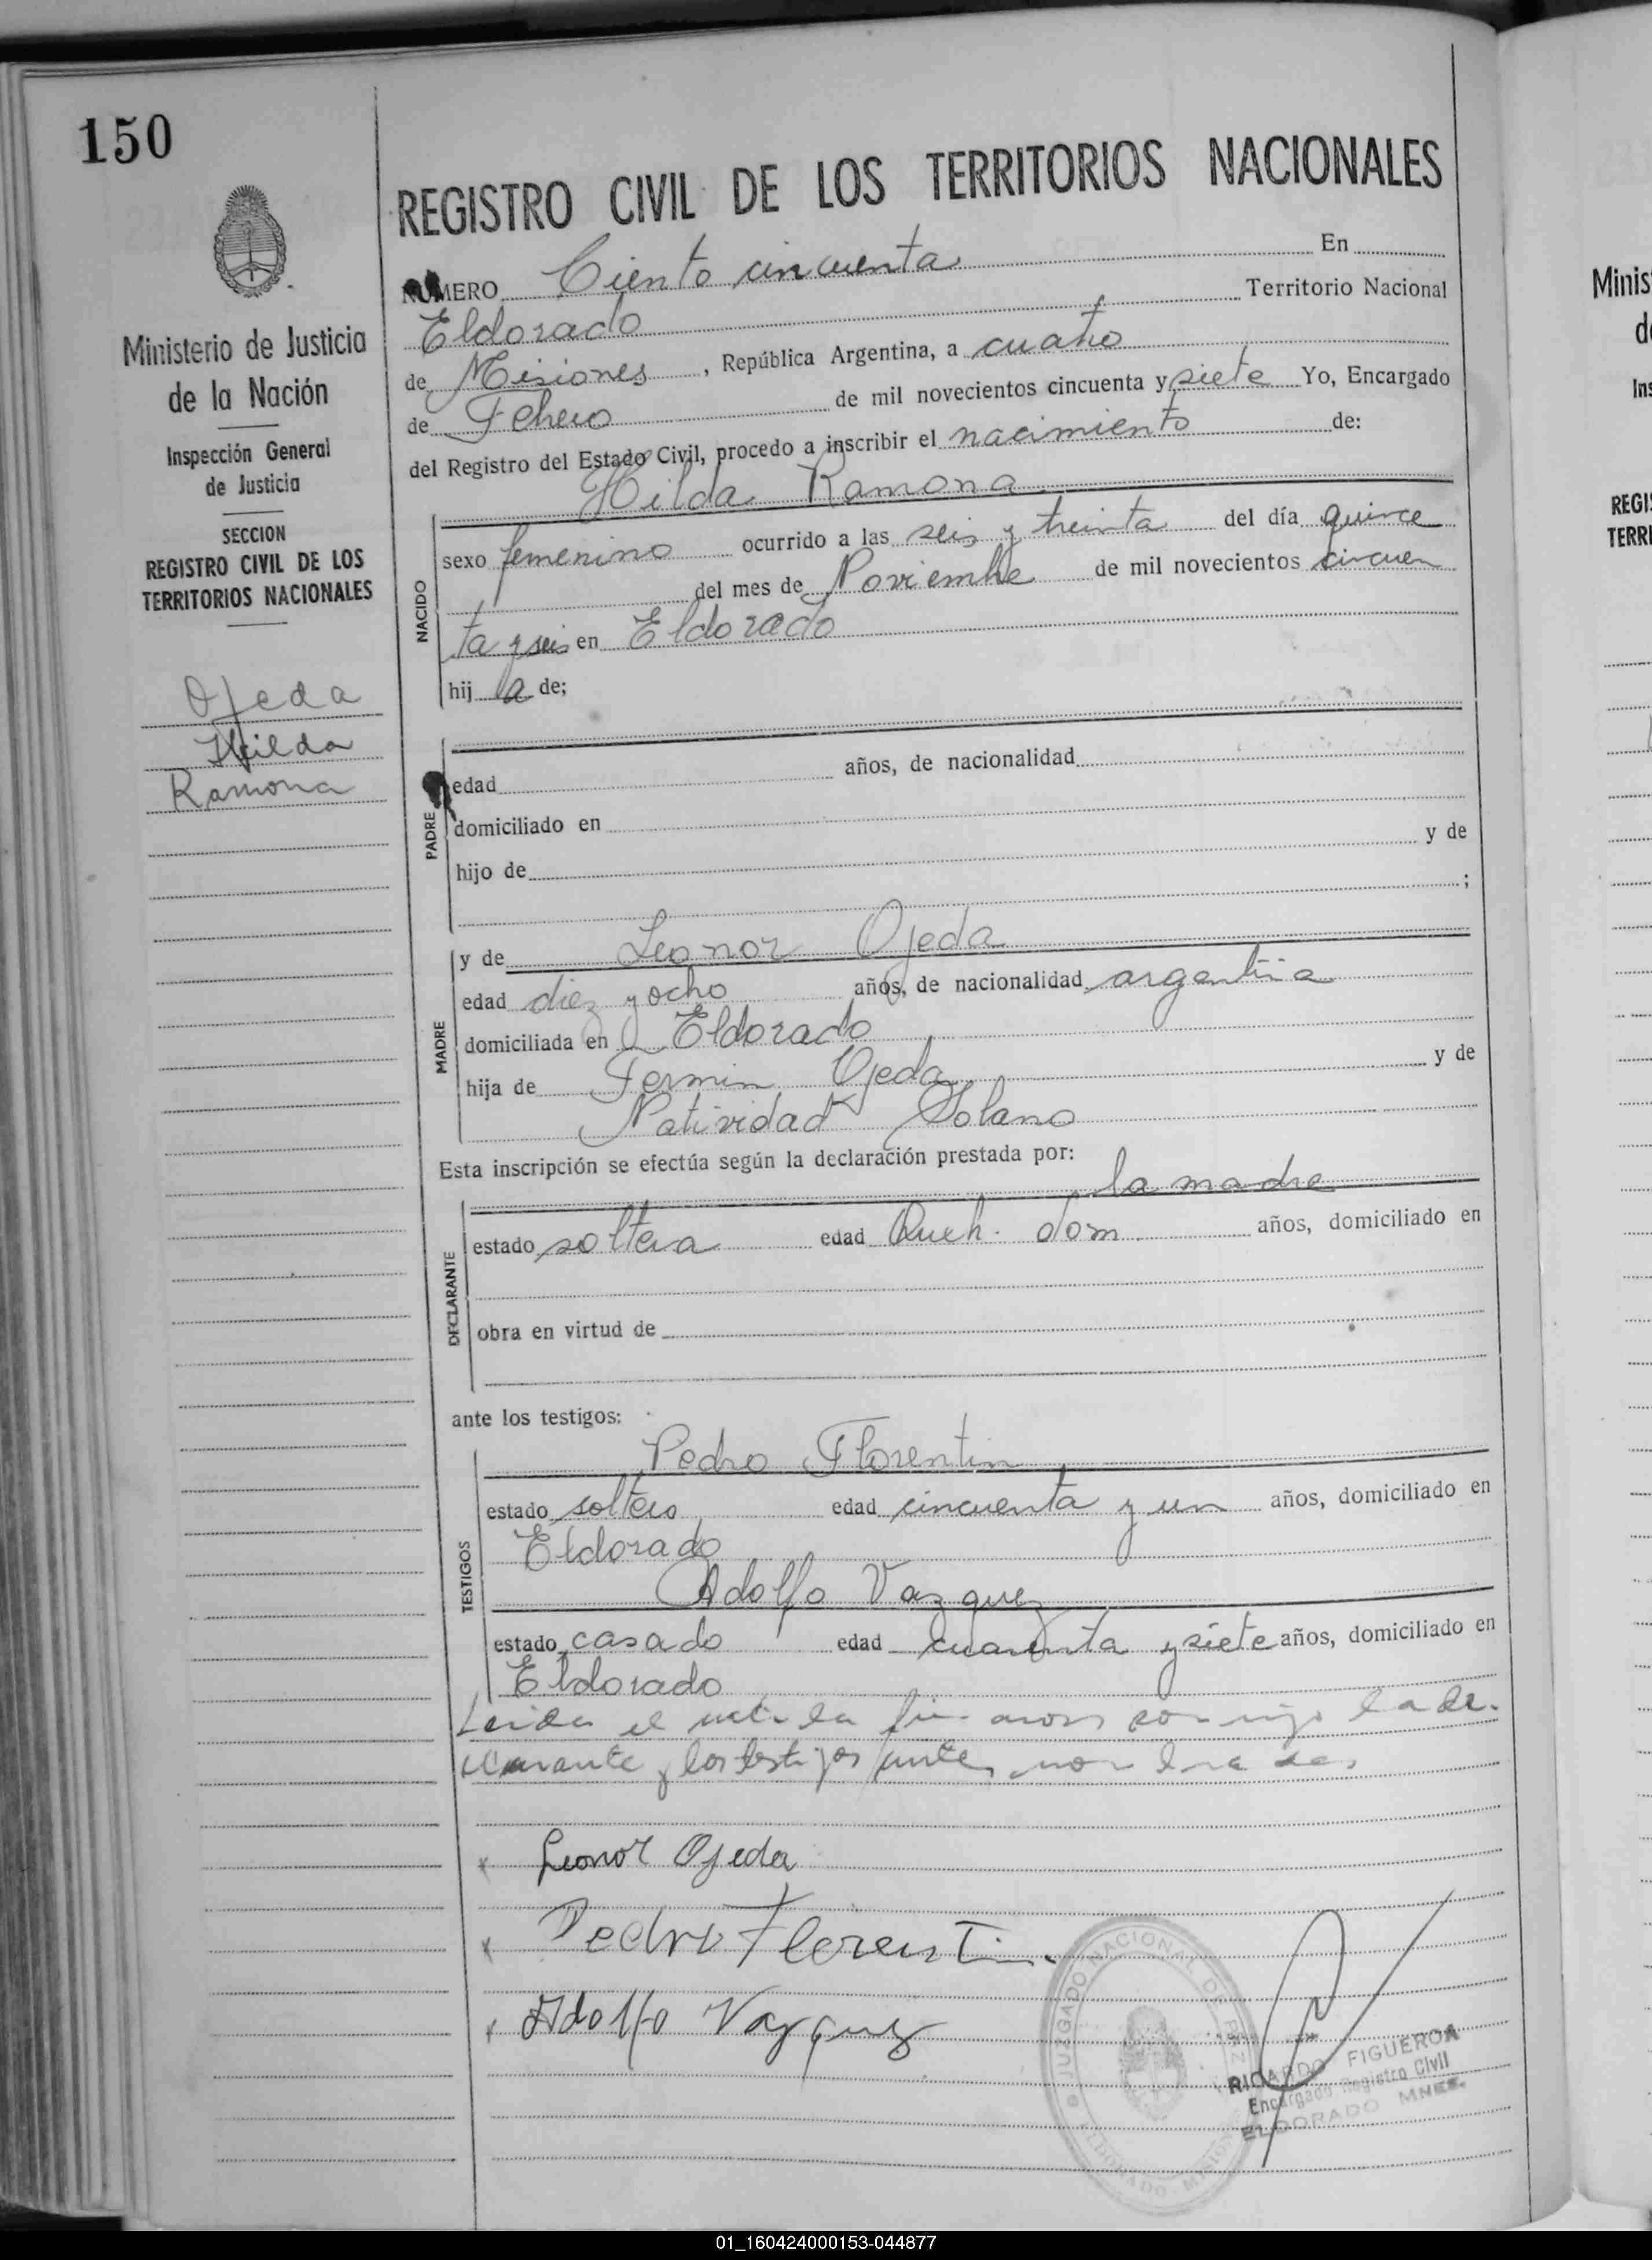 150
REGISTRO CIVIL DE LOS TERRITORIOS NACIONALES
NUMERO Ciento cincuenta En
Eldorado Territorio Nacional
de Misiones, República Argentina, a cuatro
de Febrero de mil novecientos cincuenta y siete Yo, Encargado
del Registro del Estado Civil, procedo a inscribir el nacimiento de:
Hilda Ramona
NACIDO
sexo femenino ocurrido a las seis y treinta del día quince
del mes de Noviembre de mil novecientos cincuen
ta y seis en Eldorado
hij la de;
PADRE
edad años, de nacionalidad
domiciliado en
hijo de y de
;
MADRE
y de Leonor Ojeda
edad diez y ocho años, de nacionalidad argentina
domiciliada en Eldorado
hija de Fermin Ojeda y de
Natividad Solano
Esta inscripción se efectúa según la declaración prestada por:
la madre
DECLARANTE
estado soltera edad dom. años, domiciliado en
obra en virtud de
ante los testigos:
TESTIGOS
Pedro Florentin
estado soltero edad cincuenta y un años, domiciliado en
Eldorado
Adolfo Vazquez
estado casado edad cuarenta y siete años, domiciliado en
Eldorado
Leida el acta la conmigo la de-
clarante y los testigos antes nombrados
x Leonor Ojeda
x Pedro Florentin.
x Adolfo Vazquez
JUZGADO NACIONAL DE PAZ
ELDORADO - MISIONES
RICARDO FIGUEROA
Encargado Registro Civil
ELDORADO MNES.
Ministerio de Justicia
de la Nación
Inspección General
de Justicia
SECCION
REGISTRO CIVIL DE LOS
TERRITORIOS NACIONALES
Ojeda
Hilda
Ramona
Minis
d
Ins
REGIS
TERRI
01_160424000153-044877